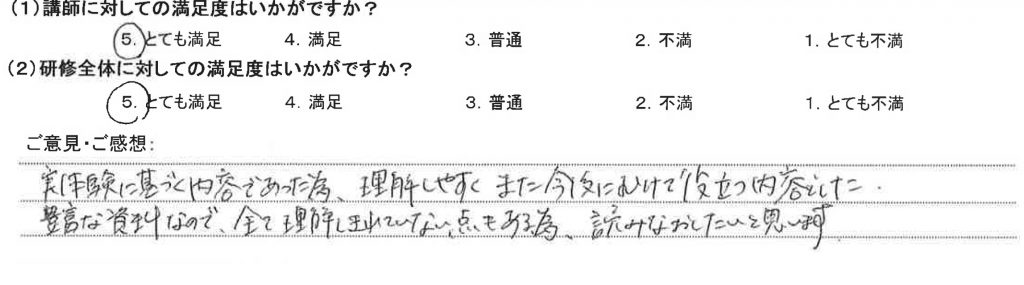 (1)講師に対しての満足度はいかがですか？
5. とても満足 4. 満足 3. 普通 2. 不満 1. とても不満
(2)研修全体に対しての満足度はいかがですか？
5. とても満足 4. 満足 3. 普通 2. 不満 1. とても不満
ご意見・ご感想:
実体験に基づく内容であった為、理解しやすく また今後にむけて役立つ内容でした.
豊富な資料なので、全て理解しきれていない点もある為、読みなおしたいと思います